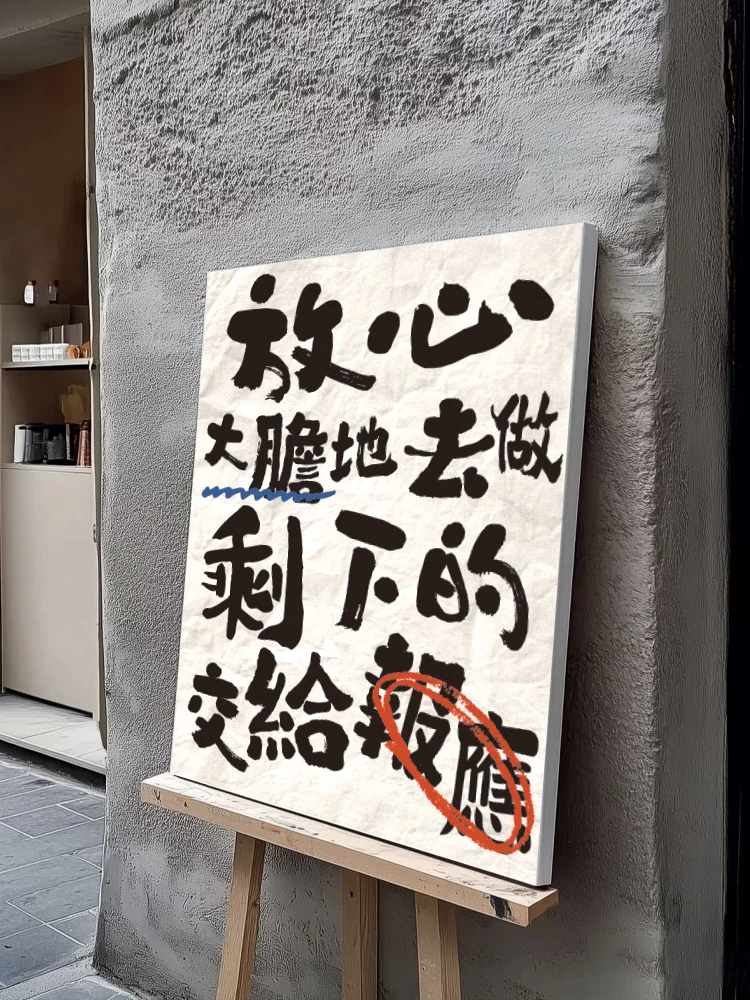 放心
大膽地去做
剩下的
交給報應